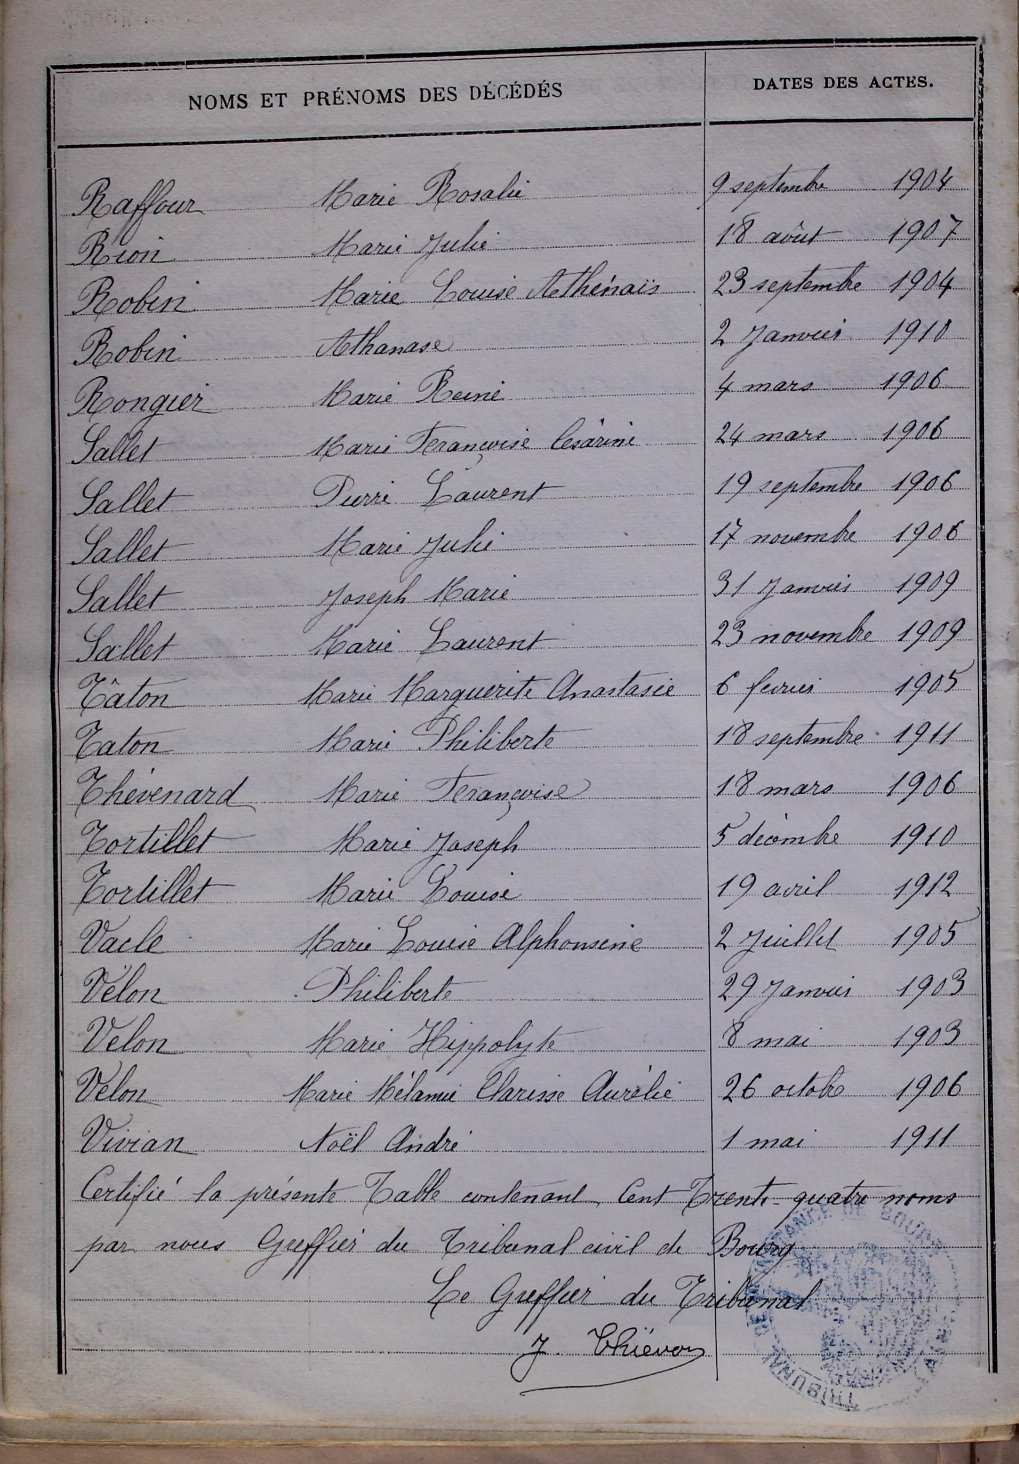 NOMS ET PRÉNOMS DES DÉCÉDÉS DATES DES ACTES.
Raffour Marie Rosalie 9 septembre 1904
Rion Marie Julie 18 août 1907
Robin Marie Louise Athénaïs 23 septembre 1904
Robin Athanase 2 Janvier 1910
Rongier Marie Reine 4 mars 1906
Sallet Marie Françoise Césarine 24 mars 1906
Sallet Pierre Laurent 19 septembre 1906
Sallet Marie Julie 17 novembre 1906
Sallet Joseph Marie 31 Janvier 1909
Sallet Marie Laurent 23 novembre 1909
Tâton Marie Marguerite Anastasie 6 février 1905
Taton Marie Philiberte 18 septembre 1911
Thévenard Marie Françoise 18 mars 1906
Tortillet Marie Joseph 5 décembre 1910
Tortillet Marie Louise 19 avril 1912
Vacle Marie Louise Alphonsine 2 Juillet 1905
Vélon Philiberte 29 Janvier 1903
Velon Marie Hippolyte 8 mai 1903
Velon Marie Mélanie Clarisse Aurélie 26 octobre 1906
Vivian Noël André 1 mai 1911
Certifié la présente Table contenant Cent Trente-quatre noms
par nous Greffier du Tribunal civil de Bourg
Le Greffier du Tribunal
J. Thiévon
TRIBUNAL DE INSTANCE DE BOURG